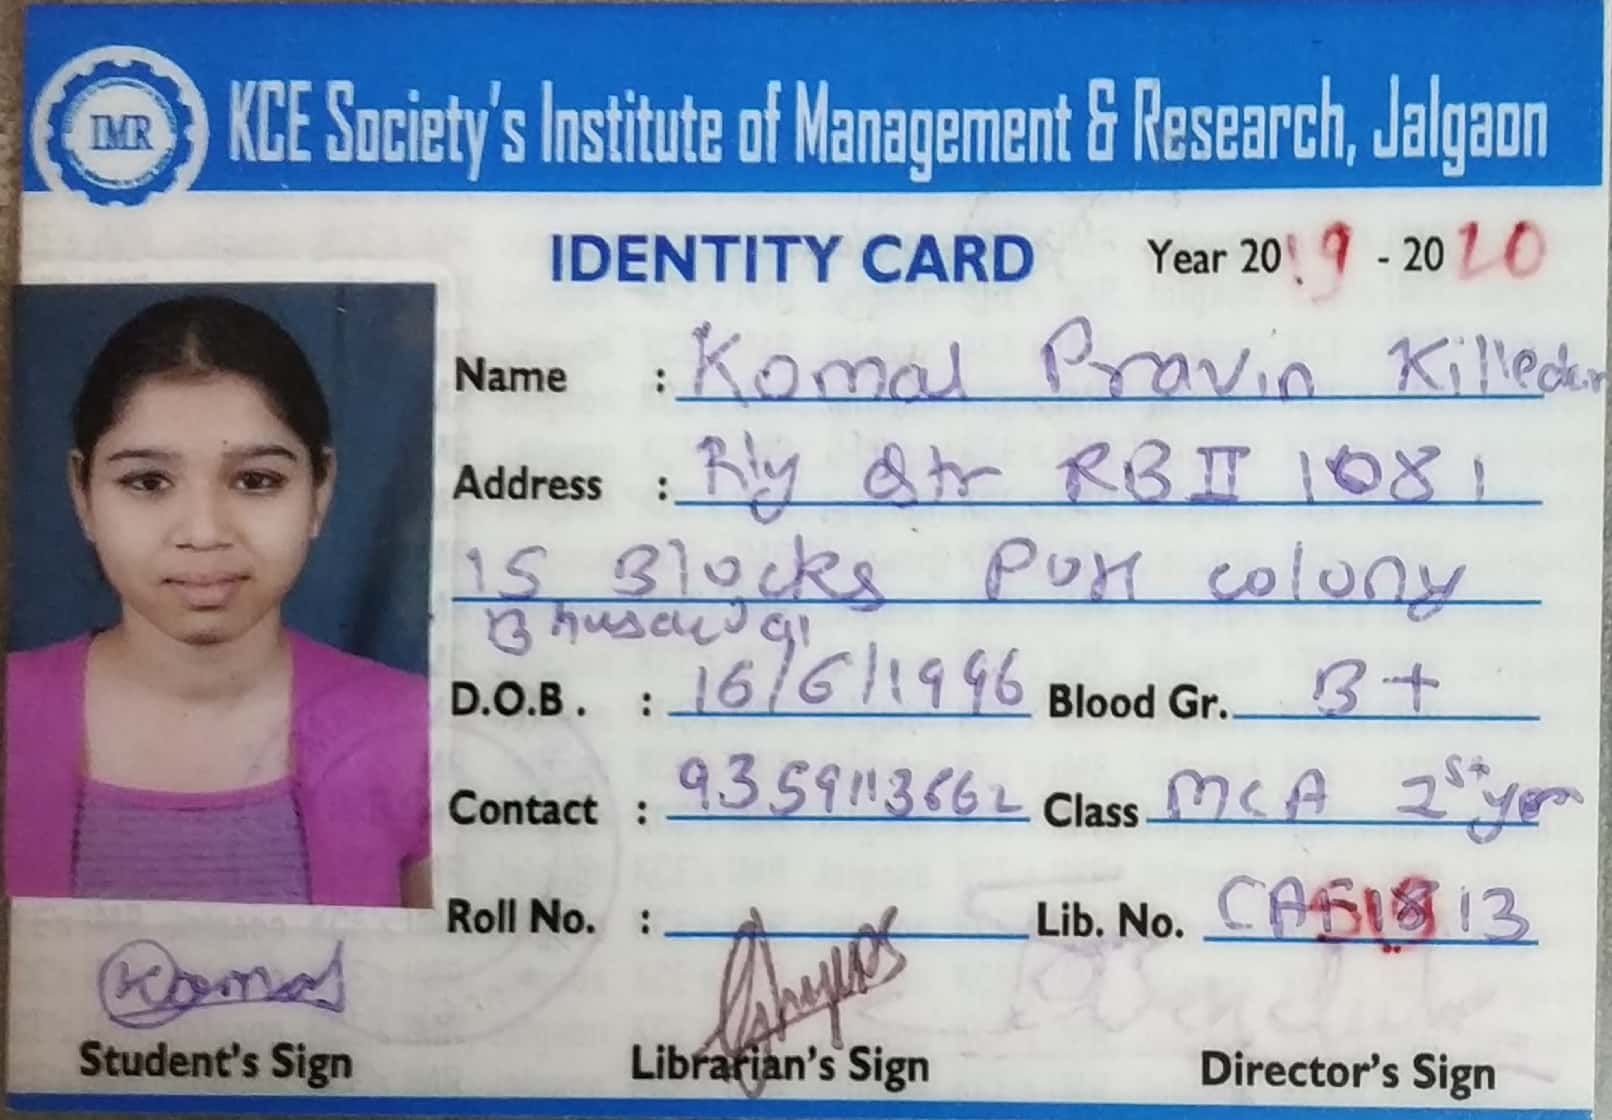 IMR
KCE Society's Institute of Management & Research, Jalgaon
IDENTITY CARD Year 2019 - 2020
Name : Komal Pravin Killedar
Address : Rly Qtr RB II 1081
15 Blocks POH colony
Bhusawal
D.O.B. : 16/6/1996 Blood Gr. B+
Contact : Class MCA 2st year
Roll No. : Lib. No. 13
Komal
Student's Sign Librarian's Sign Director's Sign